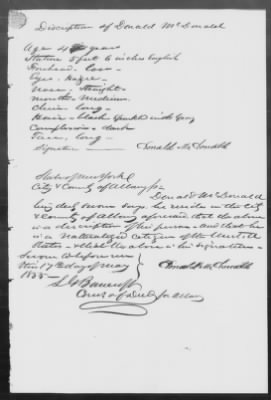 Description of Donald McDonald
Age 47 years
Stature 5 feet 6 inches English
Forehead - Low -
Eyes - Hazle -
Nose - Straight -
mouth - Medium
Chin - Long -
Hair - black Sprinkled with Gray
Complexion - dark
Face, Long -
Signature - Donald McDonald
State of New York
City & County of Albany ss
Donald McDonald
being duly sworn says he resides in the City
& County of Albany aforesaid that the above
is a description of his person - and that he
is a naturalized citizen of the United
States - & that the above is his signature -
Sworn before me
this 17 day of May
1855 - Donald McDonald
Bancroft
for Albany